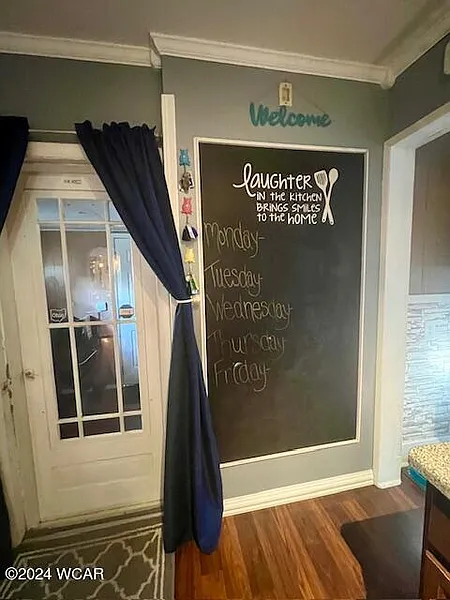 Welcome
Laughter
IN THE KITCHEN
BRINGS SMILES
TO THE HOME
Monday-
Tuesday-
Wednesday-
Thursday-
Friday-
©2024 WCAR